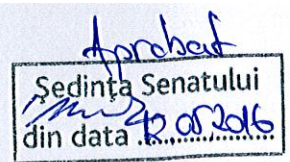 Aprobat
Ședința Senatului
din data 12.05.2016